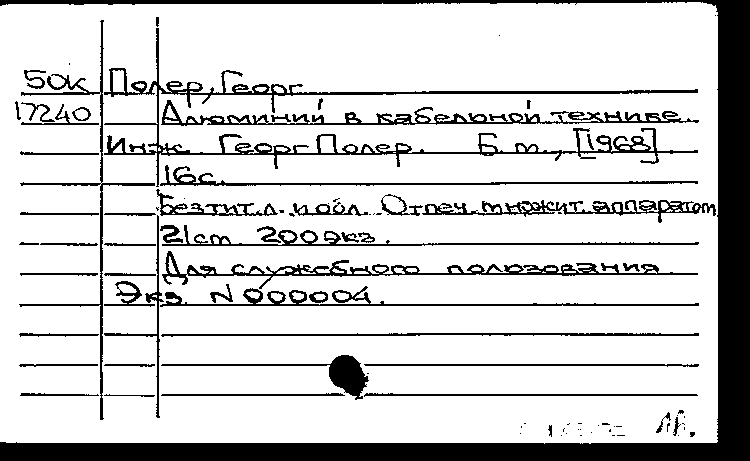 50к Полер, Георг
17240 Алюминий в кабельной технике.
Инж. Георг Полер. Б. т., [1968].
16с.
Без тит. л. и обл. Отпеч. множит. аппаратом
21 ст. 200 экз.
Для служебного пользования.
Экз. N 000004.